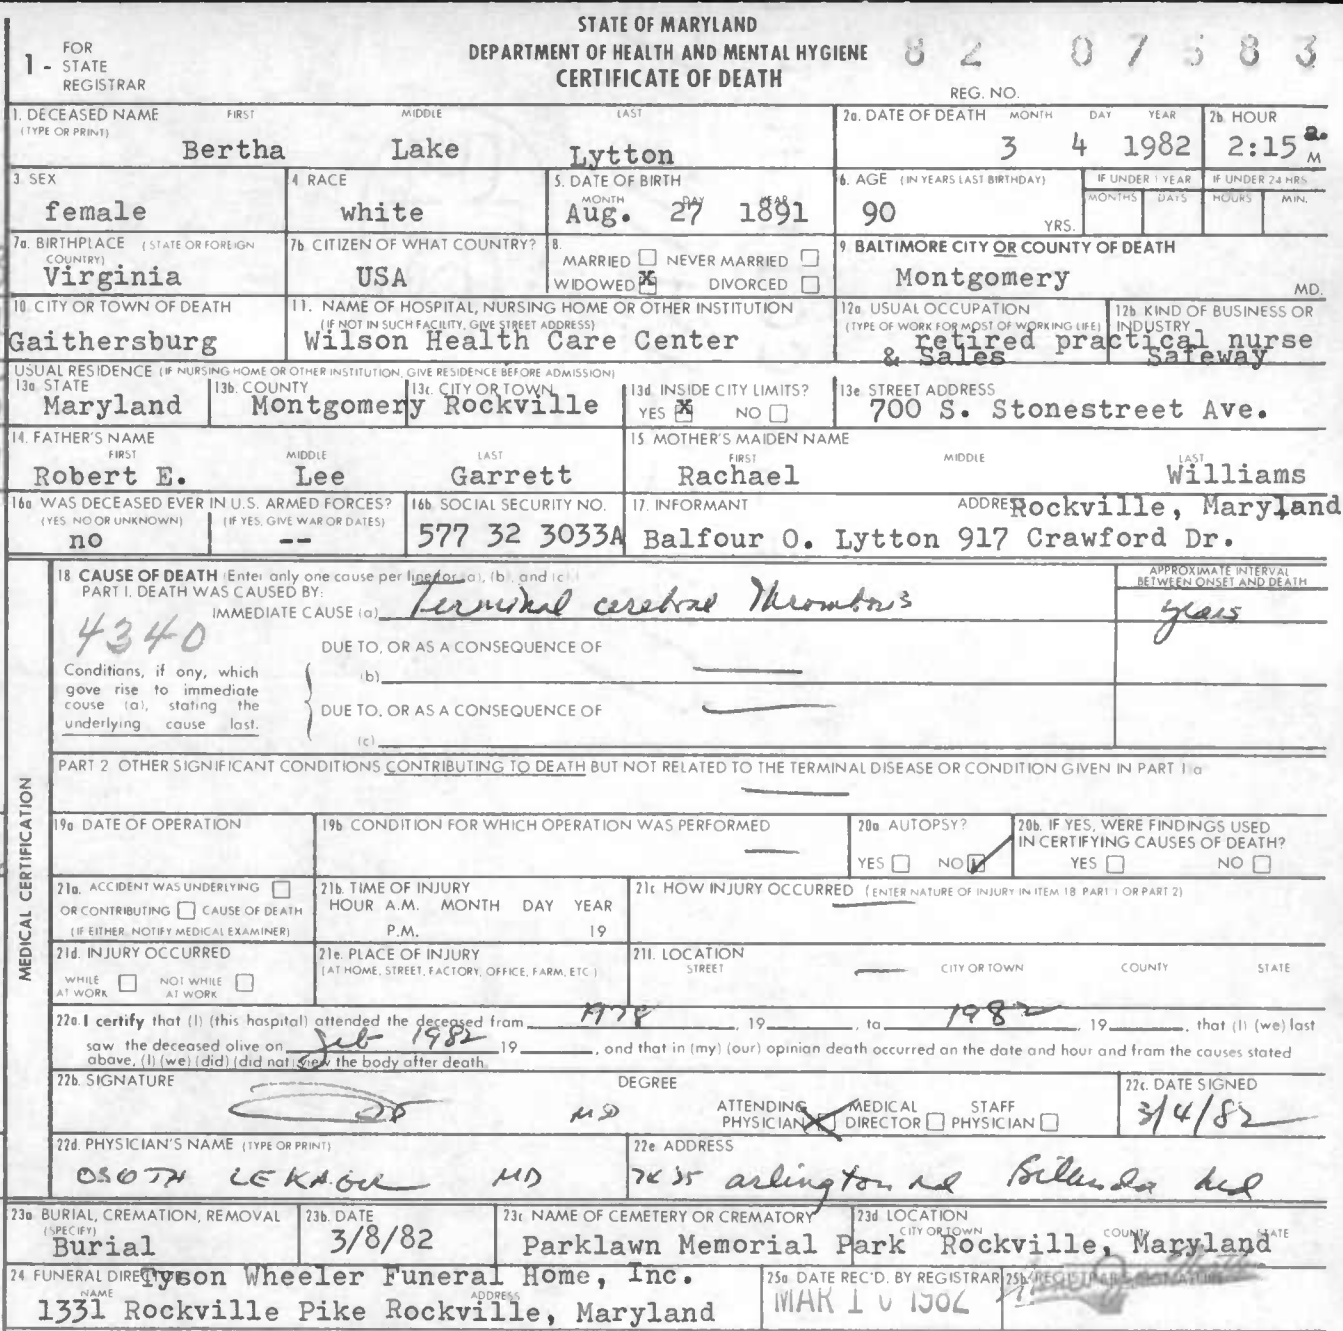 STATE OF MARYLAND
DEPARTMENT OF HEALTH AND MENTAL HYGIENE
CERTIFICATE OF DEATH
1 - FOR STATE REGISTRAR
82 07583
REG. NO.
1. DECEASED NAME (TYPE OR PRINT) FIRST MIDDLE LAST
Bertha Lake Lytton
2a. DATE OF DEATH MONTH DAY YEAR
3 4 1982
2b. HOUR
2:15 a. M
3. SEX
female
4. RACE
white
5. DATE OF BIRTH MONTH DAY YEAR
Aug. 27 1891
6. AGE (IN YEARS LAST BIRTHDAY)
90 YRS.
IF UNDER 1 YEAR MONTHS DAYS
IF UNDER 24 HRS HOURS MIN.
7a. BIRTHPLACE (STATE OR FOREIGN COUNTRY)
Virginia
7b. CITIZEN OF WHAT COUNTRY?
USA
8. MARRIED NEVER MARRIED
WIDOWED X DIVORCED
9. BALTIMORE CITY OR COUNTY OF DEATH
Montgomery MD.
10. CITY OR TOWN OF DEATH
Gaithersburg
11. NAME OF HOSPITAL, NURSING HOME OR OTHER INSTITUTION
(IF NOT IN SUCH FACILITY, GIVE STREET ADDRESS)
Wilson Health Care Center
12a. USUAL OCCUPATION
(TYPE OF WORK FOR MOST OF WORKING LIFE)
retired practical nurse
& Sales
12b. KIND OF BUSINESS OR INDUSTRY
Safeway
USUAL RESIDENCE (IF NURSING HOME OR OTHER INSTITUTION, GIVE RESIDENCE BEFORE ADMISSION)
13a. STATE
Maryland
13b. COUNTY
Montgomery
13c. CITY OR TOWN
Rockville
13d. INSIDE CITY LIMITS?
YES X NO
13e. STREET ADDRESS
700 S. Stonestreet Ave.
14. FATHER'S NAME
FIRST MIDDLE LAST
Robert E. Lee Garrett
15. MOTHER'S MAIDEN NAME
FIRST MIDDLE LAST
Rachael Williams
16a. WAS DECEASED EVER IN U.S. ARMED FORCES?
(YES, NO OR UNKNOWN) (IF YES, GIVE WAR OR DATES)
no --
16b. SOCIAL SECURITY NO.
577 32 3033A
17. INFORMANT ADDRE Rockville, Maryland
Balfour O. Lytton 917 Crawford Dr.
MEDICAL CERTIFICATION
18. CAUSE OF DEATH (Enter only one cause per line for (a), (b), and (c)
PART I. DEATH WAS CAUSED BY:
IMMEDIATE CAUSE (a) Terminal cerebral Thrombosis
APPROXIMATE INTERVAL BETWEEN ONSET AND DEATH
years
4340
DUE TO, OR AS A CONSEQUENCE OF
(b)
Conditions, if any, which
gave rise to immediate
cause (a), stating the
underlying cause last.
DUE TO, OR AS A CONSEQUENCE OF
(c)
PART 2 OTHER SIGNIFICANT CONDITIONS CONTRIBUTING TO DEATH BUT NOT RELATED TO THE TERMINAL DISEASE OR CONDITION GIVEN IN PART 1 a
19a. DATE OF OPERATION
19b. CONDITION FOR WHICH OPERATION WAS PERFORMED
20a. AUTOPSY?
YES NO
20b. IF YES, WERE FINDINGS USED
IN CERTIFYING CAUSES OF DEATH?
YES NO
21a. ACCIDENT WAS UNDERLYING
OR CONTRIBUTING CAUSE OF DEATH
(IF EITHER, NOTIFY MEDICAL EXAMINER)
21b. TIME OF INJURY
HOUR A.M. MONTH DAY YEAR
P.M. 19
21c. HOW INJURY OCCURRED (ENTER NATURE OF INJURY IN ITEM 18 PART 1 OR PART 2)
21d. INJURY OCCURRED
WHILE AT WORK NOT WHILE AT WORK
21e. PLACE OF INJURY
(AT HOME, STREET, FACTORY, OFFICE, FARM, ETC.)
21f. LOCATION
STREET CITY OR TOWN COUNTY STATE
22a. I certify that (I) (this hospital) attended the deceased from 1978, 19 , to 1982, 19 , that (I) (we) last
saw the deceased alive on Feb 1982 19 , and that in (my) (our) opinion death occurred on the date and hour and from the causes stated
above, (I) (we) (did) (did not) view the body after death.
22b. SIGNATURE DEGREE
MD
ATTENDING PHYSICIAN MEDICAL DIRECTOR STAFF PHYSICIAN
22c. DATE SIGNED
3/4/82
22d. PHYSICIAN'S NAME (TYPE OR PRINT)
OSOTH MD
22e. ADDRESS
arlington rd
23a. BURIAL, CREMATION, REMOVAL (SPECIFY)
Burial
23b. DATE
3/8/82
23c. NAME OF CEMETERY OR CREMATORY
Parklawn Memorial Park
23d. LOCATION
CITY OR TOWN COUNTY STATE
Rockville, Maryland
24. FUNERAL DIRE Tyson Wheeler Funeral Home, Inc.
NAME ADDRESS
1331 Rockville Pike Rockville, Maryland
25a. DATE REC'D. BY REGISTRAR
MAR 10 1982
25b. REGISTRAR'S SIGNATURE